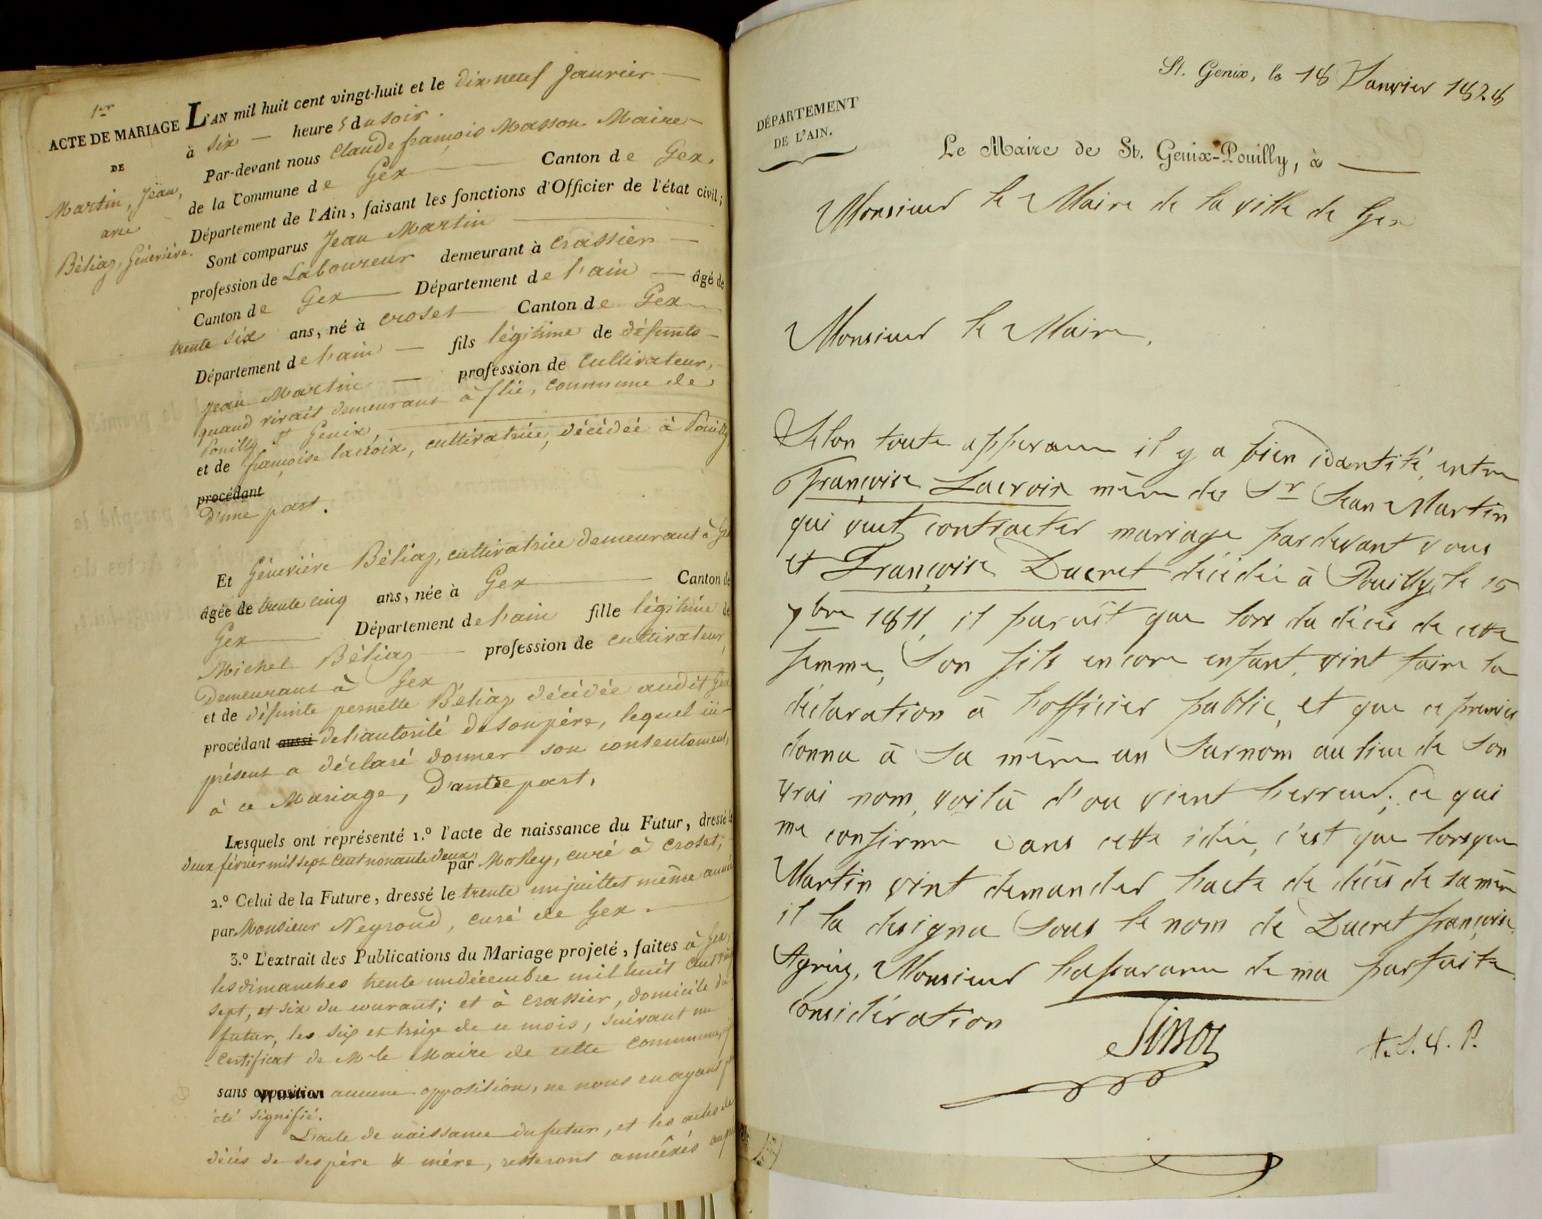 1er
ACTE DE MARIAGE
DE
Martin, Jean,
avec
Béliaz, Géneviève.
L'AN mil huit cent vingt-huit et le dix neuf Janvier
à six heures du soir.
Par-devant nous Claude françois Masson Maire
de la Commune de Gex Canton de Gex,
Département de l'Ain, faisant les fonctions d'Officier de l'état civil;
Sont comparus Jean Martin
profession de Laboureur demeurant à Crassier
Canton de Gex Département de l'ain âgé de
trente six ans, né à Croset Canton de Gex
Département de l'ain fils légitime de défunts
Jean Martin profession de Cultivateur,
quand vivait demeurant à flié, commune de
Pouilly St Genix,
et de françoise lacroix, cultivatrice, décédée à Pouilly
procédant
D'une part.
Et Géneviève Béliaz, cultivatrice demeurant à Gex
âgée de trente cinq ans, née à Gex Canton de
Gex Département de l'ain fille légitime de
Michel Béliaz profession de cultivateur
Demeurant à Gex
et de défunte pernette Béliaz décédée audit Gex
procédant aussi de l'autorité de son père, lequel ii-
présent a déclaré donner son consentement,
à ce Mariage, D'autre part.
Lesquels ont représenté 1.° l'acte de naissance du Futur, dressé le
deux février mil sept cent nonante deux par Morley, curé à croset;
2.° Celui de la Future, dressé le trente un juillet même année
par Monsieur Neyroud, curé de Gex.
3.° L'extrait des Publications du Mariage projeté, faites à Gex,
les dimanches trente un décembre mil huit cent vingt
sept, et six du courant; et à crassier, domicile du
futur, les six et treize de ce mois, suivant un
certificat de Mr le Maire de cette commune,
sans opposition aucune opposition, ne nous en ayant
été signifié.
L'acte de naissance du futur, et les actes de
décès de ses père & mère, resteront annéxés au
St. Genix, le 18 Janvier 1828
DÉPARTEMENT
DE L'AIN.
Le Maire de St. Genix-Pouilly, à
Monsieur le Maire de la ville de Gex
Monsieur le Maire,
Selon toute apparance il y a bien idantité, entre
Françoise Lacroix mère des Sr Jean Martin
qui veut contracter mariage pardevant vous
et Françoise Ducret décédée à Pouilly, le 15
7bre 1811, il parait que lors du décès de cette
femme, son fils encore enfant, vint faire la
déclaration à l'officier public, et que ce premier
donna à sa mère un surnom au lieu de son
vrai nom, voilà d'ou vient l'erreur; ce qui
me confirme dans cette idée, c'est que lorsque
Martin vint demander l'acte de décès de sa mère
il la designa sous le nom de Ducret françoise.
Agréez, Monsieur l'assurance de ma parfaite
considération
t. S. V. P.